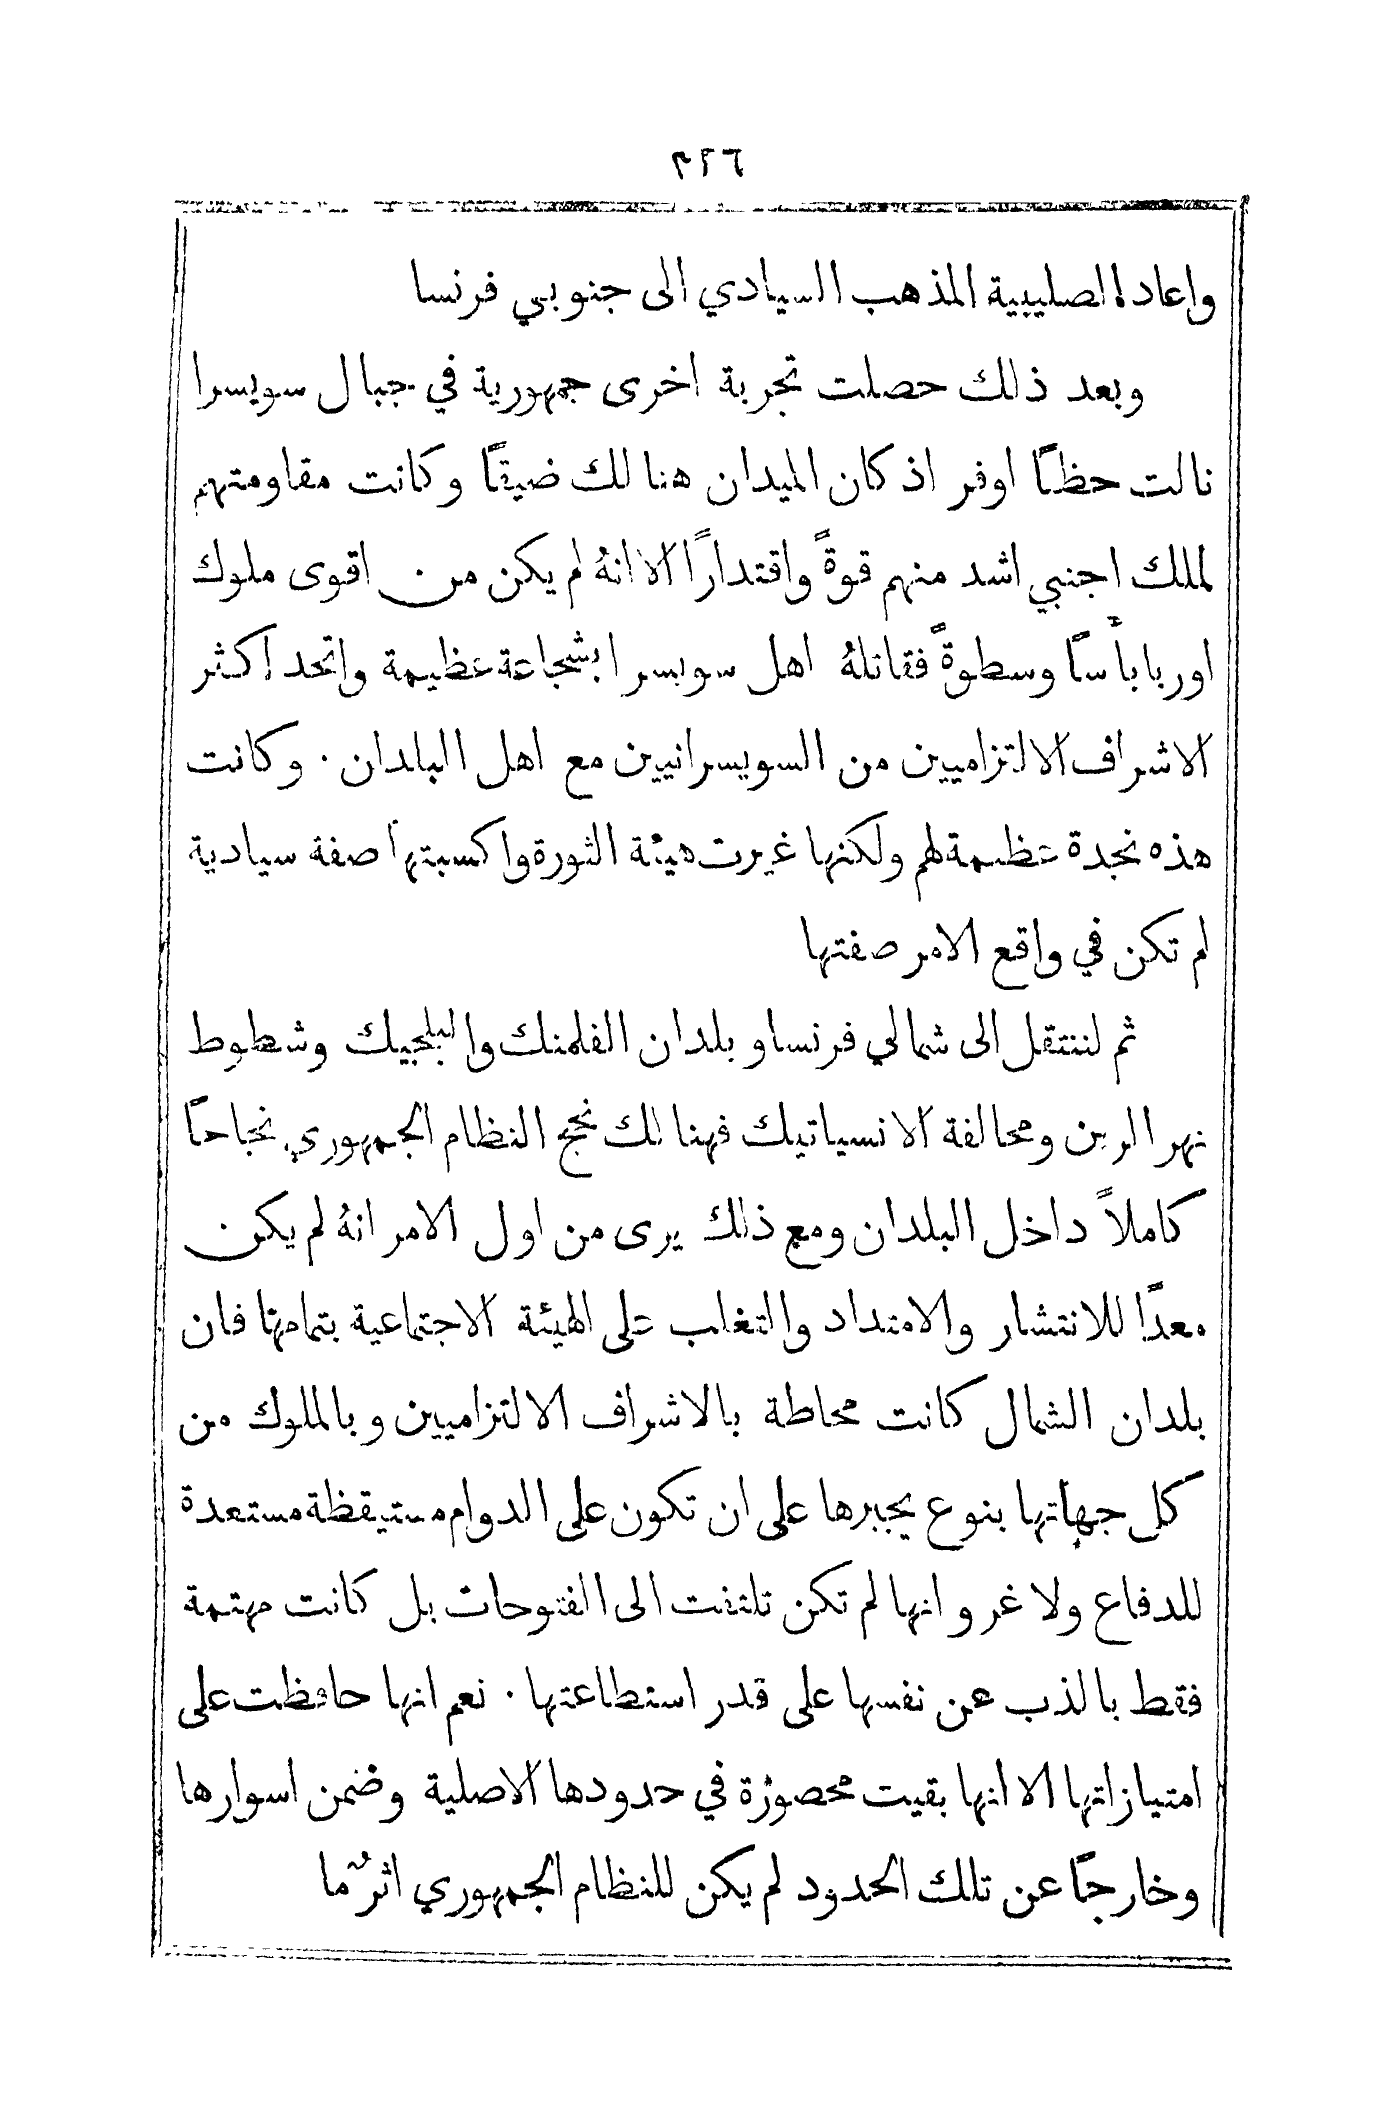 ٣٢٦
واعاد الصليبية المذهب السيادي الى جنوبي فرنسا
وبعد ذلك حصلت تجربة اخرى جمهورية في جبال سويسرا
نالت حظًا اوفر اذ كان الميدان هنا لك ضيقًا وكانت مقاومتهم
لملك اجنبي اشد منهم قوةً واقتدارًا الا انهُ لم يكن من اقوى ملوك
اوربا بأسًا وسطوةً فقاتلهُ اهل سويسرا بشجاعة عظيمة واتحد اكثر
الاشراف الالتزاميين من السويسرانيين مع اهل البلدان . وكانت
هذه نجدة عظيمة لهم ولكنها غيرت هيئة الثورة واكسبتها صفة سيادية
لم تكن في واقع الامر صفتها
ثم لننتقل الى شمالي فرنسا وبلدان الفلمنك والبلجيك وشطوط
نهر الرين ومحالفة الانسياتيك فهنا لك نجح النظام الجمهوري نجاحًا
كاملاً داخل البلدان ومع ذلك يرى من اول الامر انهُ لم يكن
معدًا للانتشار والامتداد والتغلب على الهيئة الاجتماعية بتمامها فان
بلدان الشمال كانت محاطة بالاشراف الالتزاميين وبالملوك من
كل جهاتها بنوع يجبرها على ان تكون على الدوام مستيقظة مستعدة
للدفاع ولا غرو انها لم تكن تلتفت الى الفتوحات بل كانت مهتمة
فقط بالذب عن نفسها على قدر استطاعتها . نعم انها حافظت على
امتيازاتها الا انها بقيت محصورة في حدودها الاصلية وضمن اسوارها
وخارجًا عن تلك الحدود لم يكن للنظام الجمهوري اثرٌ ما